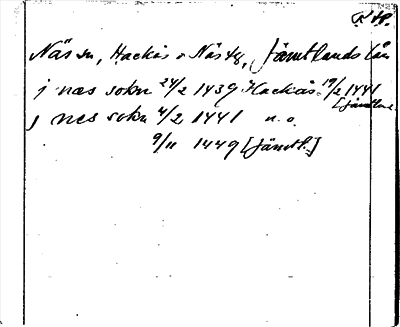 Näs sn, Hackås o Näs tg, Jämtlands län
j næs sokn 24/2 1439 Hackås. 19/2 1441
[Jämtl.
j nes sokn 4/2 1441 n. o.
9/11 1449 [Jämtl.]